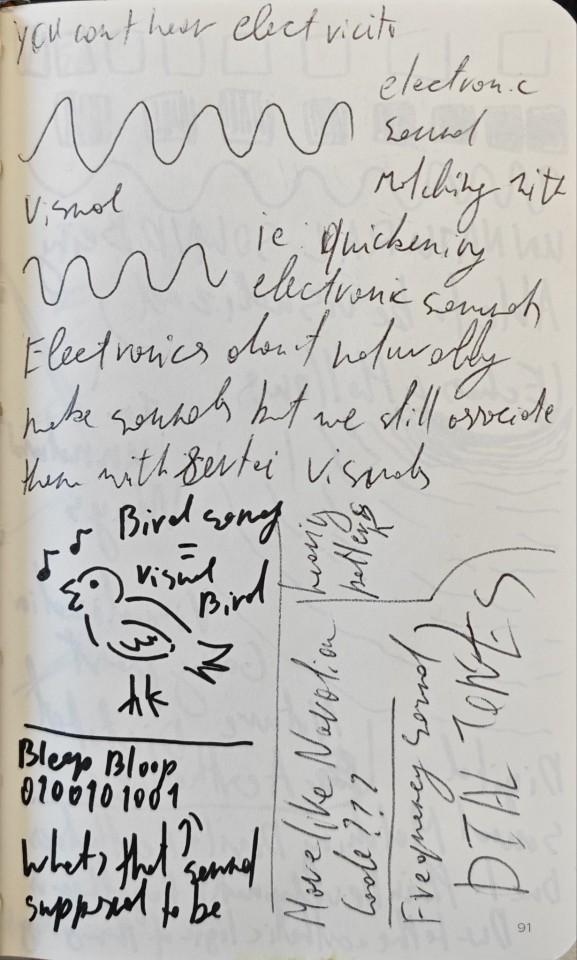 you can't hear electricity
electronic
sound
matching with
Visual
ie. quickening
electronic sounds
Electronics don't naturally
make sounds but we still associate
them with visuals
Bird song
=
visual
Bird
Bleep Bloop
0100101001
Whats that sound
supposed to be
hearing
patterns
Move like Navotion
code???
Frequency sound
DIAL TONES
91